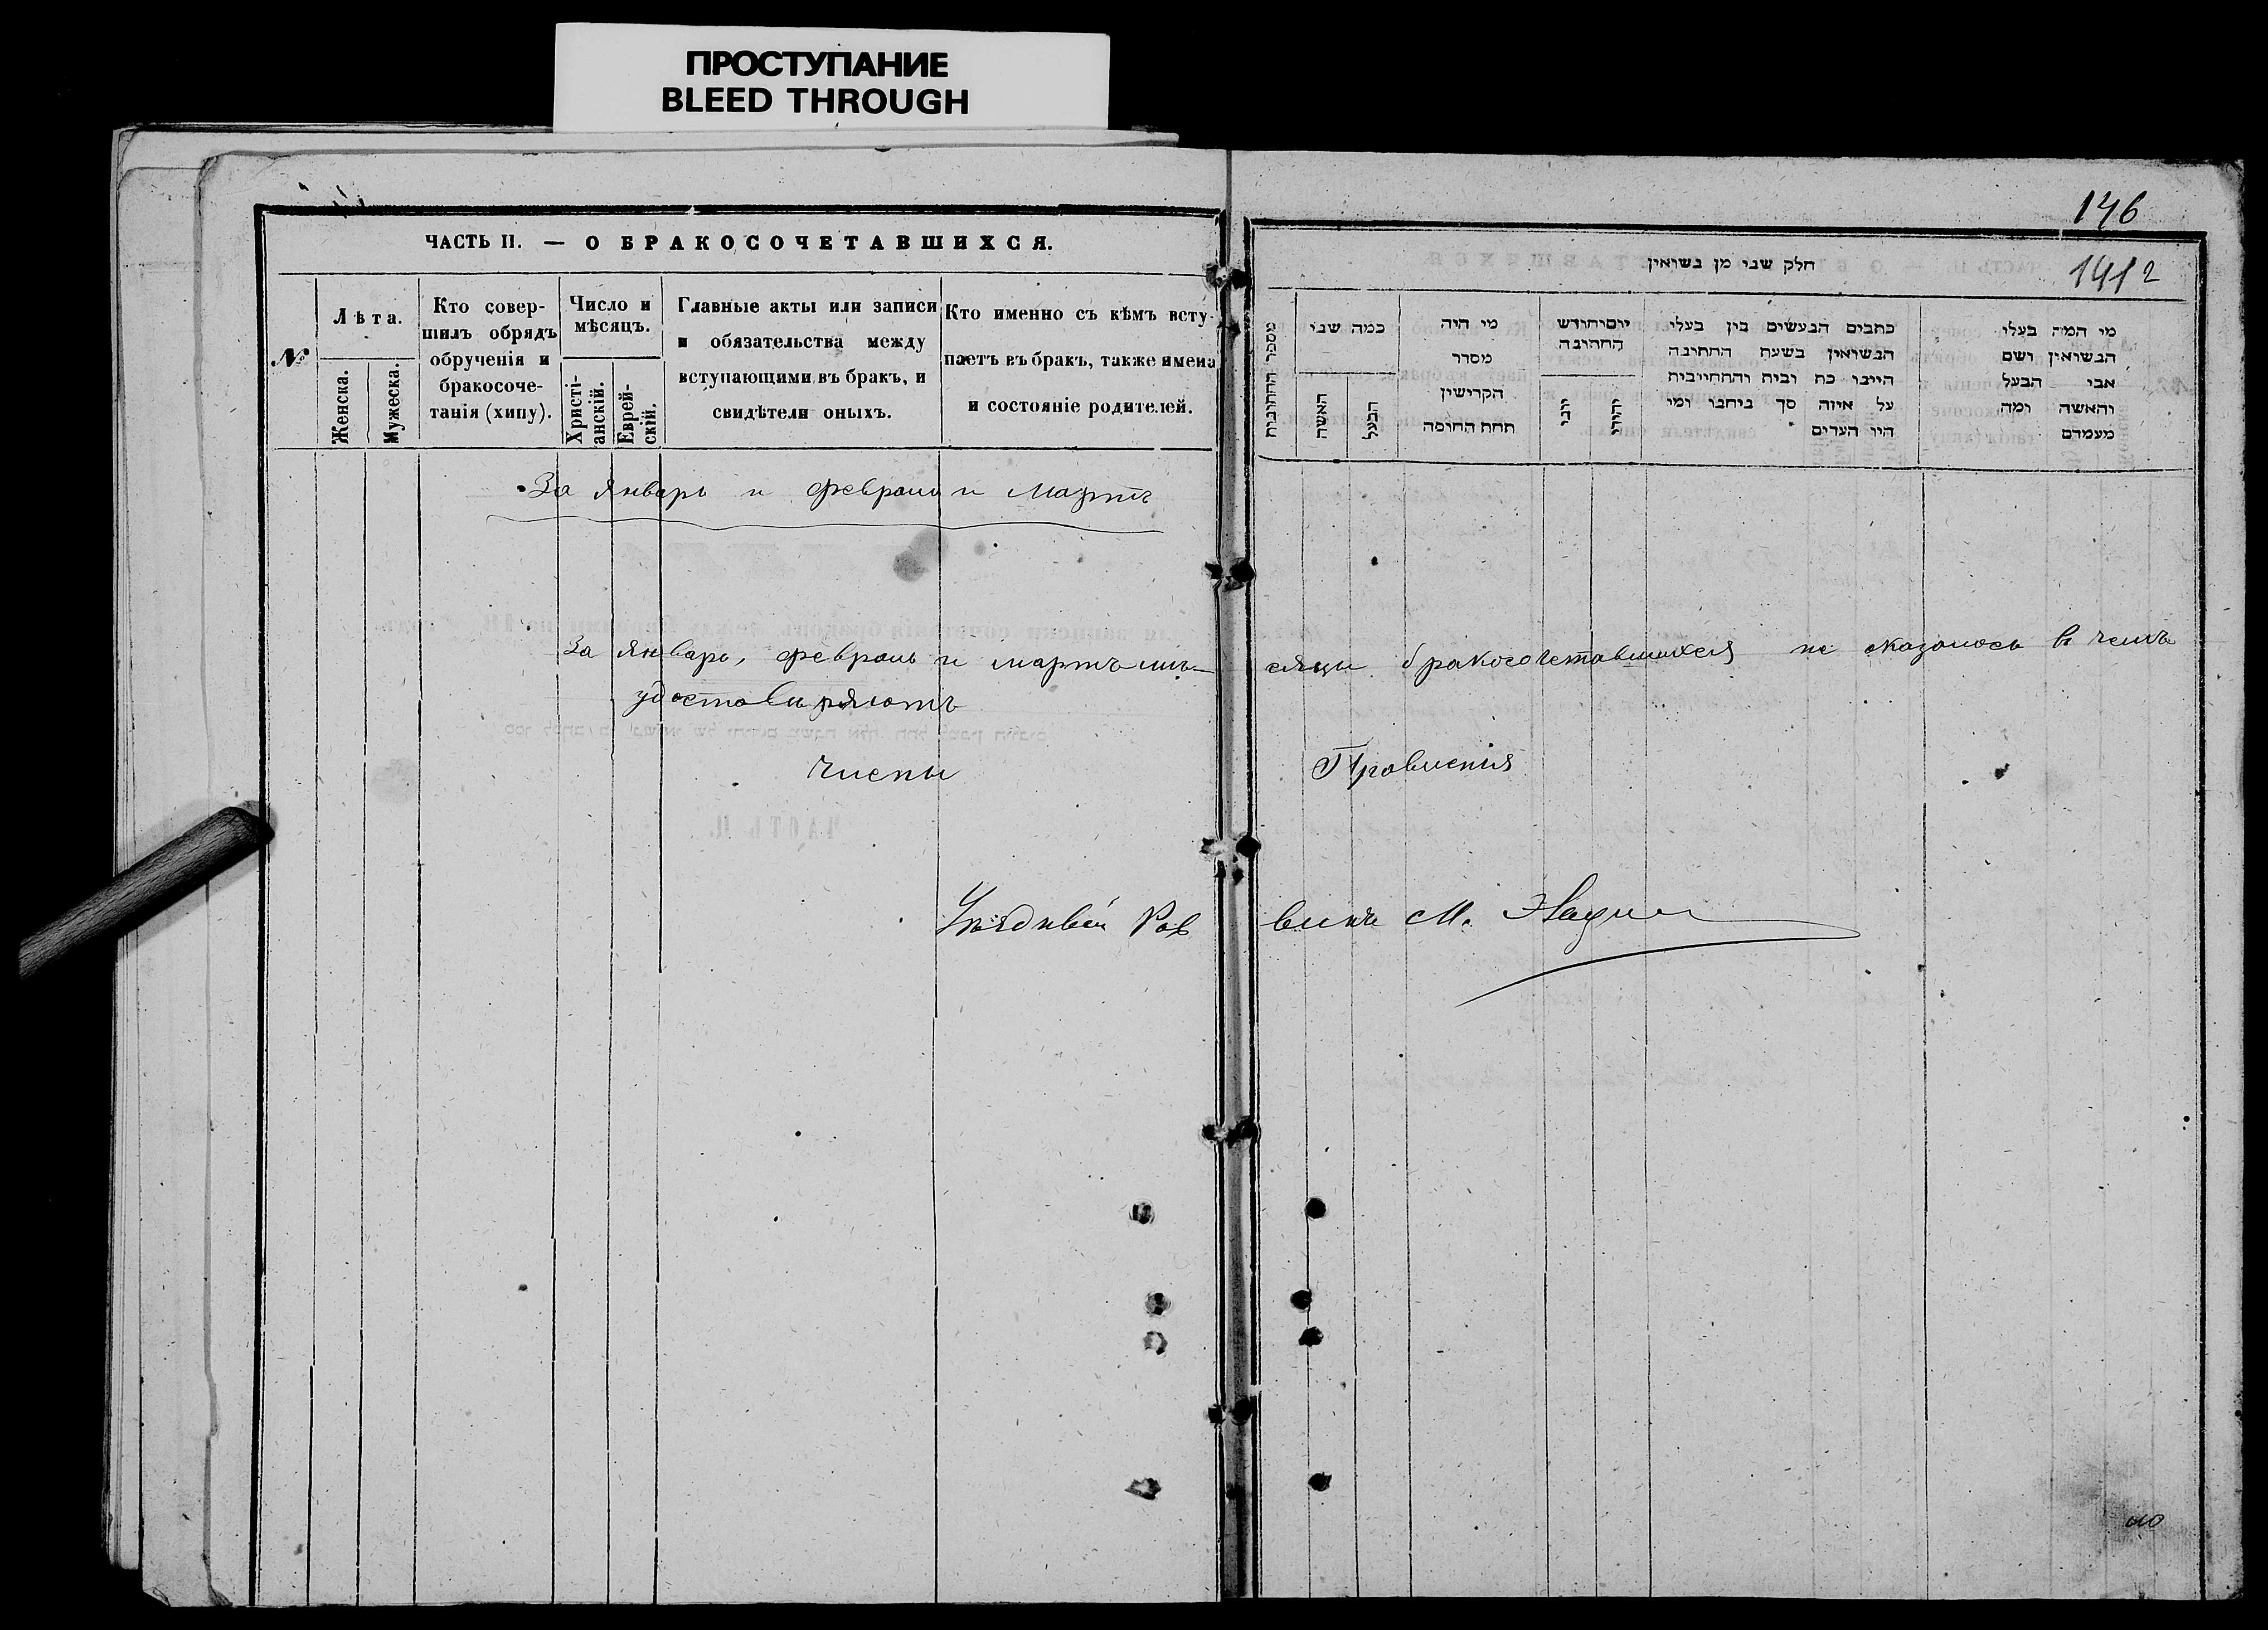 ПРОСТУПАНИЕ
BLEED THROUGH
ЧАСТЬ II. — О БРАКОСОЧЕТАВШИХСЯ.
№
Лѣта.
Женска.
Мужеска.
Кто совер-
шилъ обрядъ
обрученія и
бракосоче-
танія (хипу).
Число и
мѣсяцъ.
Христі-
анскій.
Еврей-
скій.
Главные акты или записи
и обязательства между
вступающими въ бракъ, и
свидѣтели оныхъ.
Кто именно съ кѣмъ всту-
паетъ въ бракъ, также имена
и состояніе родителей.
146
141 2
חלק שני מן נשואין
מספר החתונות
כמה שני
האשה
הבעל
מי היה
מסדר
הקדושין
תחת החופה
יום וחודש
החתונה
יוני
יהודי
כתבים הנעשים בין בעלי
הנשואין בשעת החתונה
היינו כת ובית והתחייבות
על איזה סך ביחנו ומי
היו העדים
מי המה בעלי
הנשואין ושם
אבי הבעל
והאשה ומה
מעמדם
За январь и февраль и мартъ
За январь, февраль и мартъ мѣ- сяцы бракосочетавшихся не оказалось в чемъ
удостовѣряютъ
Члены Правленія
Раввинъ М.